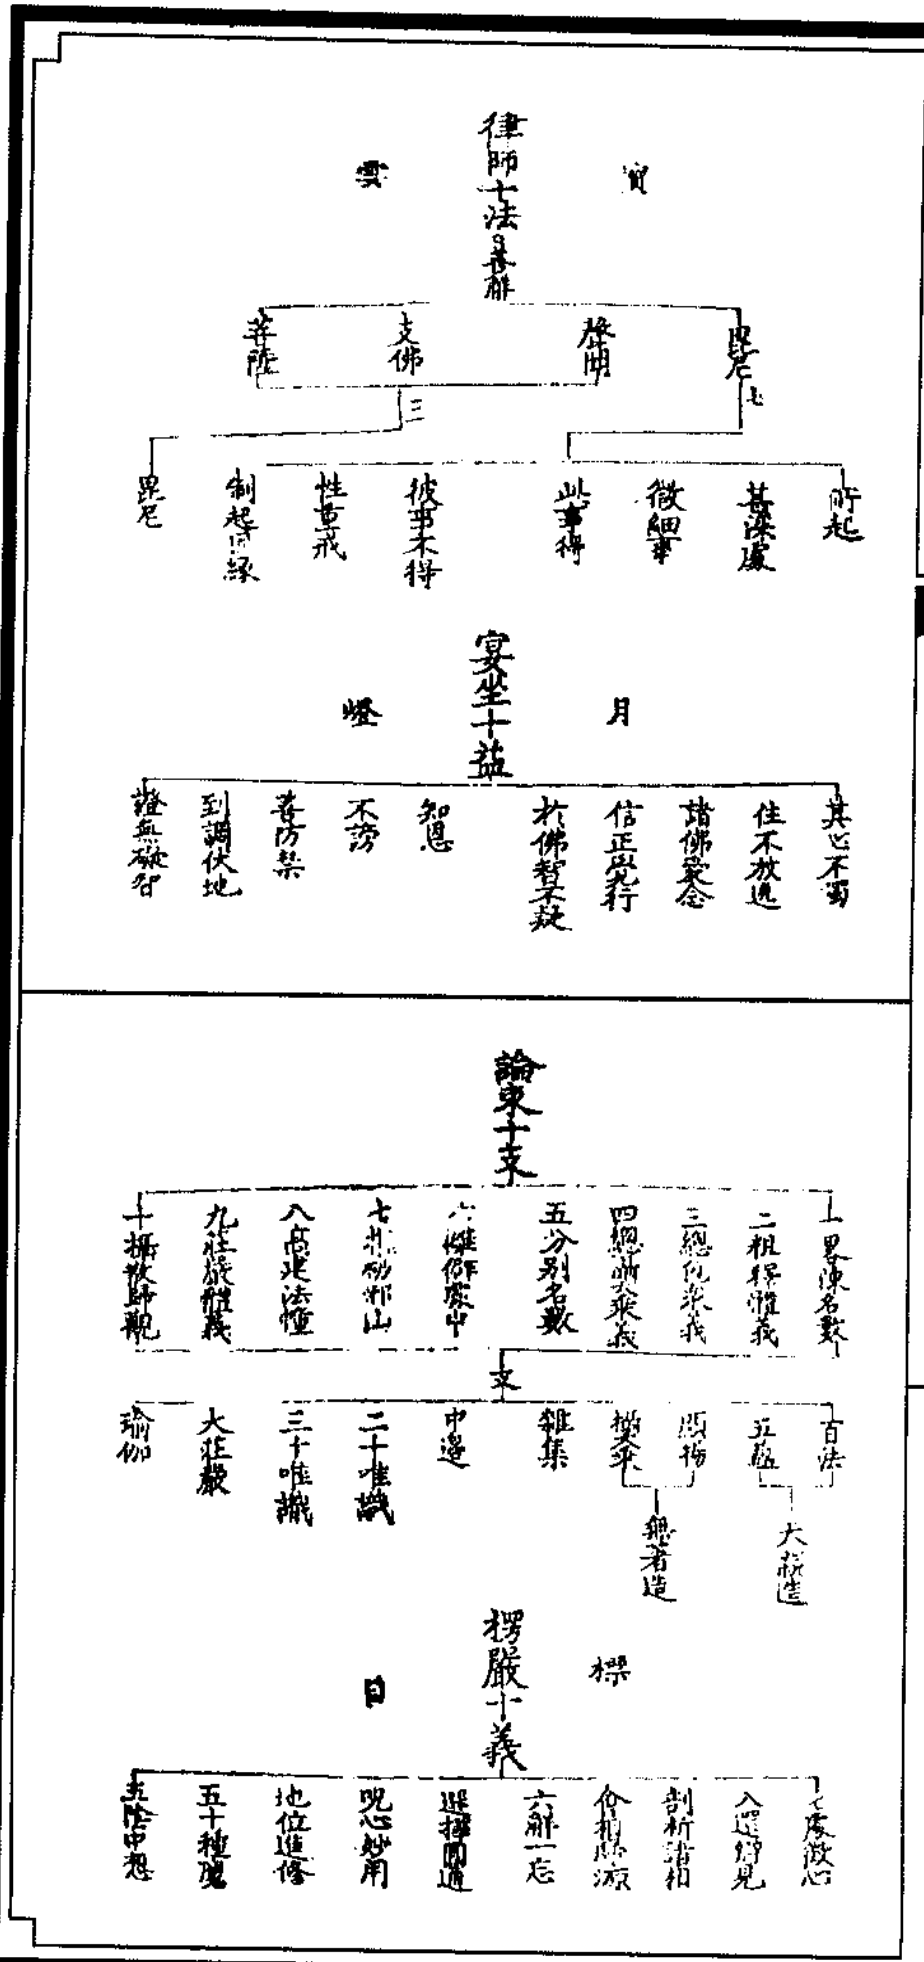 寶
律師十法
善解
雲
毘尼
聲聞
支佛
菩薩
七
三
所起
甚深處
微細事
此事得
彼事不得
性重戒
制起因緣
毘尼
月
宴坐十益
燈
其心不濁
住不放逸
諸佛愛念
信正覺行
於佛智不疑
知恩
不謗
善防禁
到調伏地
證無礙智
論東十支
一畧陳名數
二粗釋體義
三總包眾義
四總攝大乘義
五分別名數
六離僻處中
七摧破邪山
八高建法幢
九莊嚴體義
十攝散歸觀
支
百法
五蘊
顯揚
攝大乘
雜集
中邊
二十唯識
三十唯識
大莊嚴
瑜伽
天親造
無著造
標
楞嚴十義
目
七處徵心
八還辯見
剖析諸相
會相歸源
六解一忘
選擇圓通
咒心妙用
地位進修
五十種魔
五陰中想